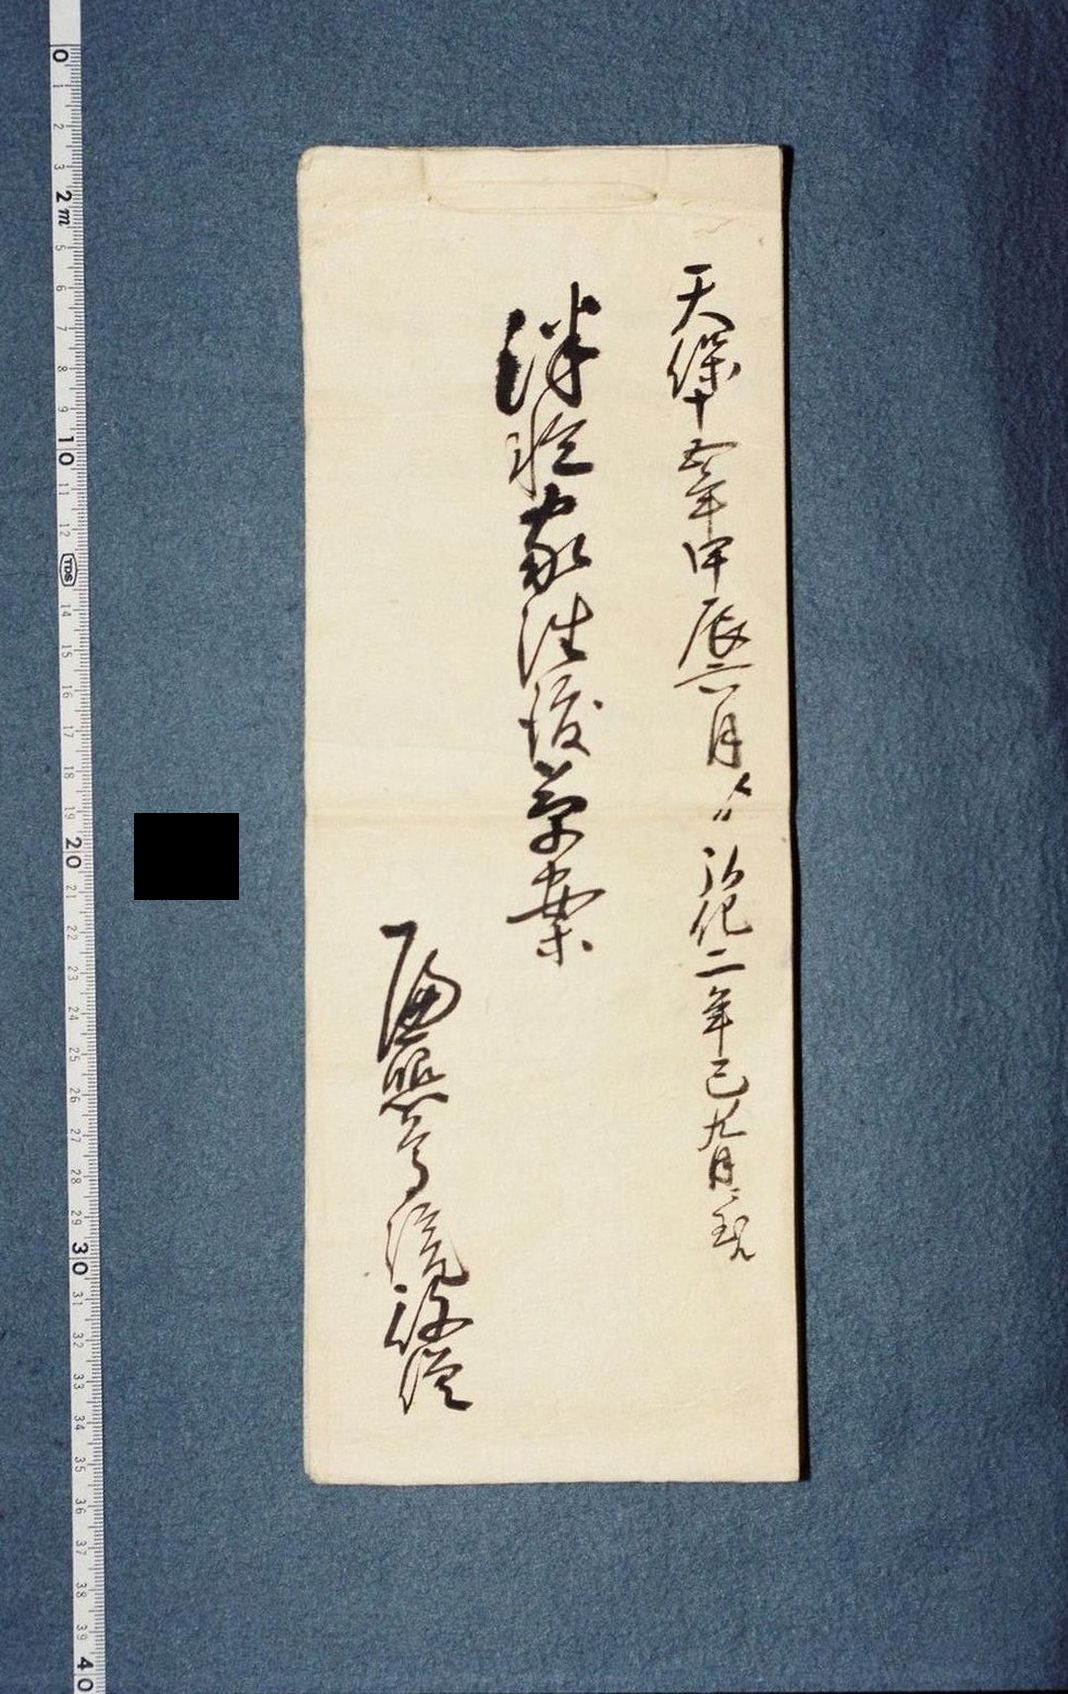 天保十五年甲辰六月ゟ弘化二年巳九月ニ至ル
津軽家往復草案
役僧
0 1 2 3 2m 5 6 7 8 9 10 11 12 TDS 14 15 16 17 18 19 20 21 22 23 24 25 26 27 28 29 30 31 32 33 34 35 36 37 38 39 40